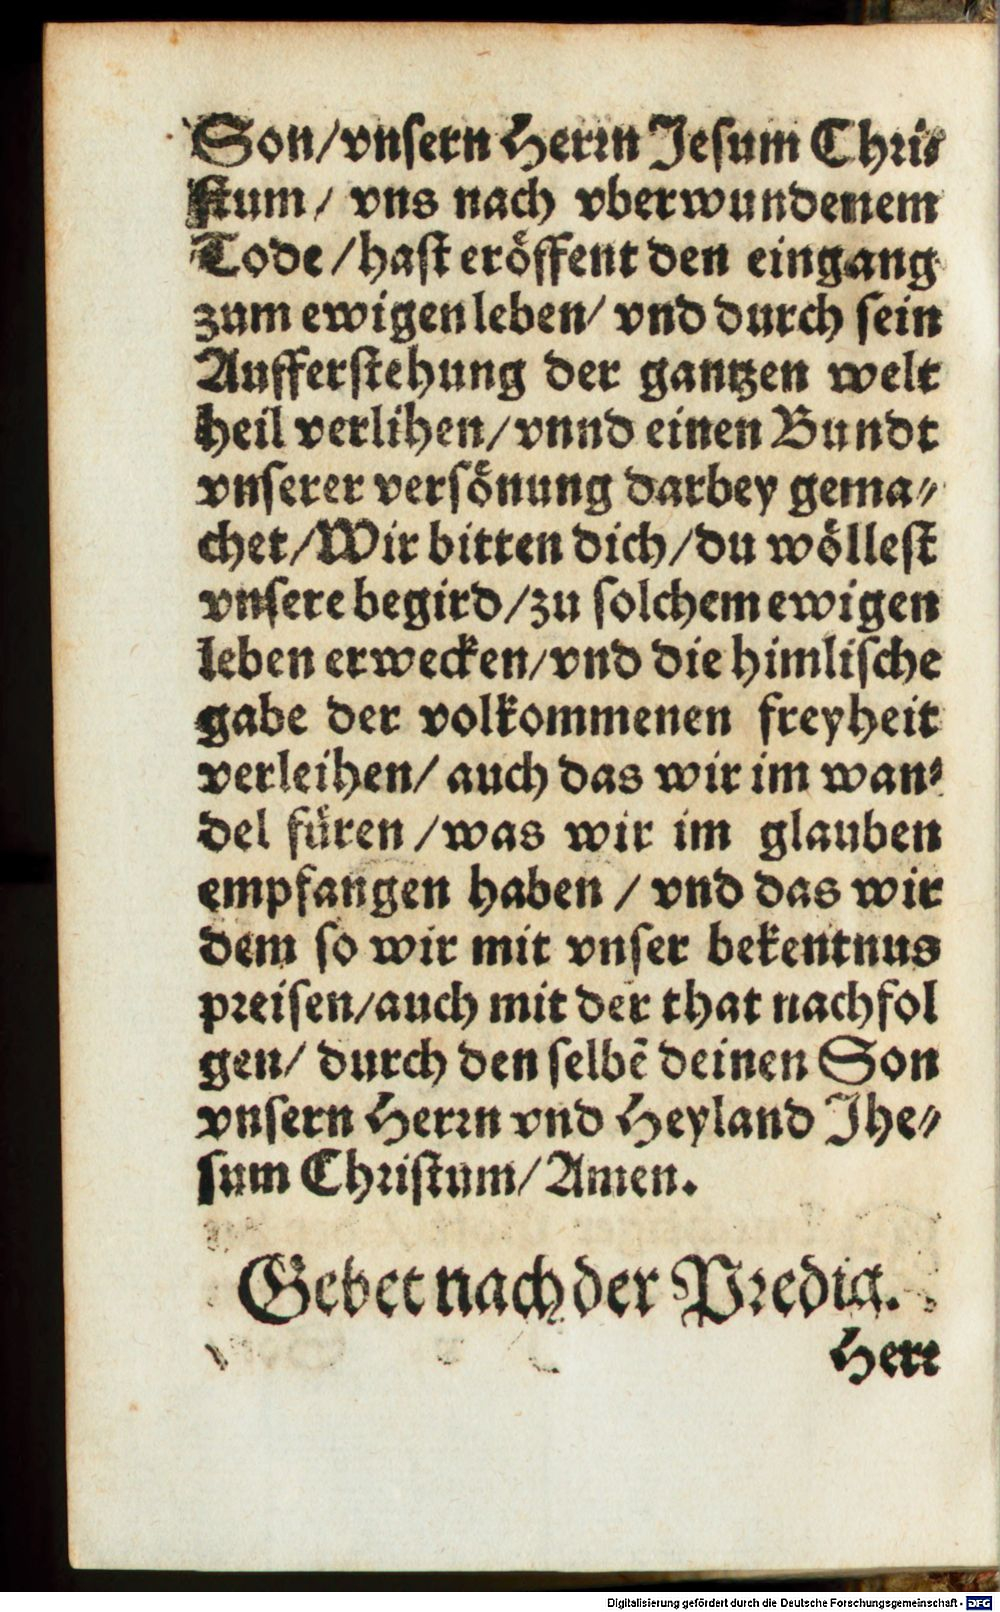 Son/ vnsern Herrn Jesum Chri⸗
stum/ vns nach vberwundenem
Tode/ hast eröffent den eingang
zum ewigen leben/ vnd durch sein
Aufferstehung der gantzen welt
heil verlihen/ vnnd einen Bundt
vnserer versönung darbey gema⸗
chet/ Wir bitten dich/ du wöllest
vnsere begird/ zu solchem ewigen
leben erwecken/ vnd die himlische
gabe der volkommenen freyheit
verleihen/ auch das wir im wan⸗
del füren/ was wir im glauben
empfangen haben/ vnd das wir
dem so wir mit vnser bekentnus
preisen/ auch mit der that nachfol
gen/ durch den selbē deinen Son
vnsern Herrn vnd Heyland Jhe⸗
sum Christum/ Amen.
Gebet nach der Predig.
Herr
Digitalisierung gefördert durch die Deutsche Forschungsgemeinschaft - DFG